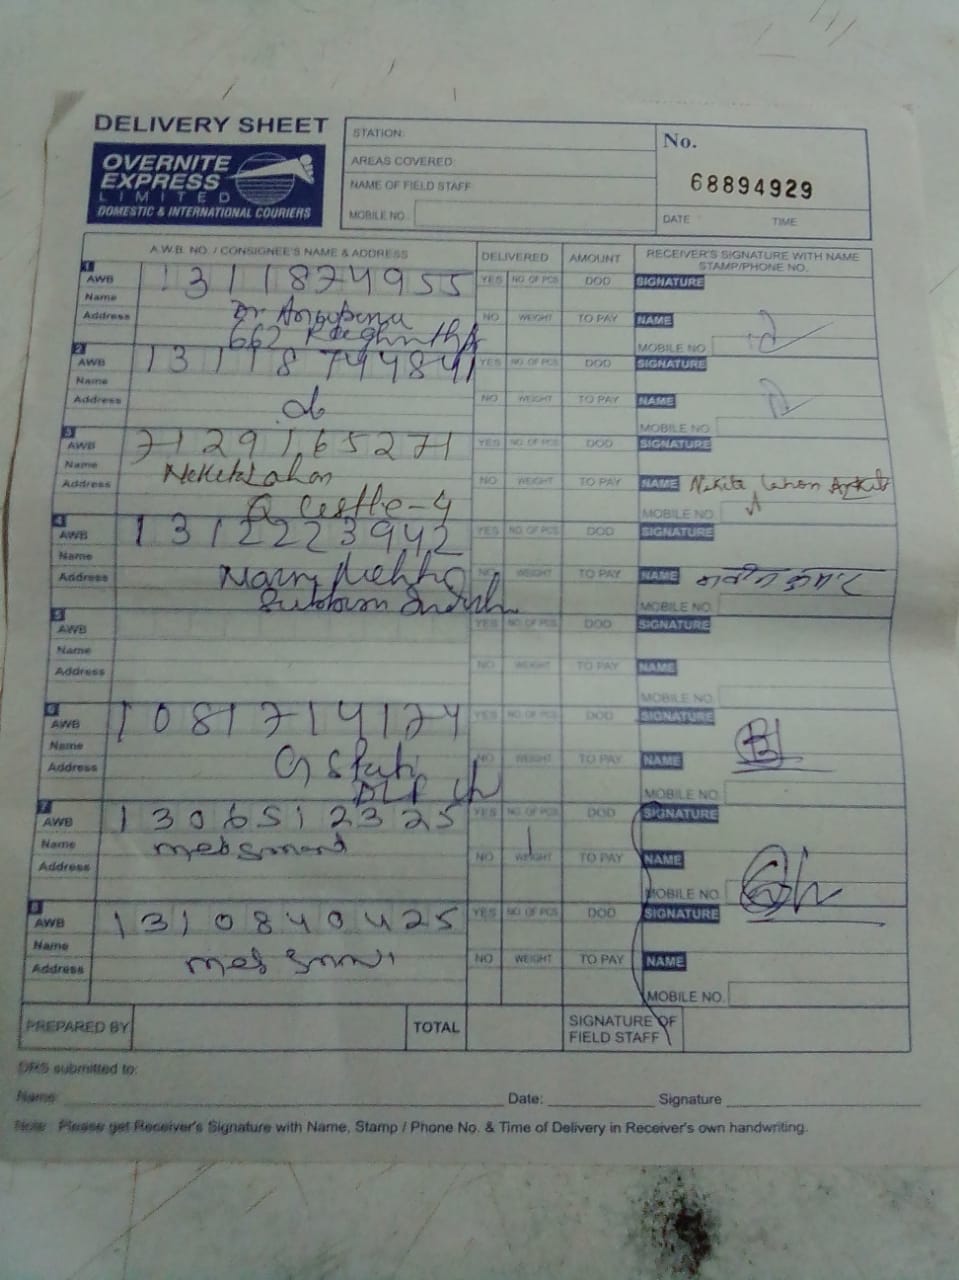 DELIVERY SHEET
OVERNITE
EXPRESS
LIMITED
DOMESTIC & INTERNATIONAL COURIERS
STATION:
AREAS COVERED:
NAME OF FIELD STAFF
MOBILE NO.
No.
68894929
DATE TIME
A.W.B. NO. / CONSIGNEE'S NAME & ADDRESS DELIVERED AMOUNT RECEIVER'S SIGNATURE WITH NAME
STAMP/PHONE NO.
1
AWB 1311874955 YES NO. OF PCS DOD SIGNATURE
Name
Address Dr NO WEIGHT TO PAY NAME
662
MOBILE NO.
2
AWB YES NO. OF PCS DOD SIGNATURE
Name
Address do NO WEIGHT TO PAY NAME
MOBILE NO.
3
AWB 7129165271 YES NO. OF PCS DOD SIGNATURE
Name
Address NO WEIGHT TO PAY NAME Nikita
Castle-4
MOBILE NO.
4
AWB 1312223942 YES NO. OF PCS DOD SIGNATURE
Name
Address NO WEIGHT TO PAY NAME
MOBILE NO.
5
AWB YES NO. OF PCS DOD SIGNATURE
Name
Address NO WEIGHT TO PAY NAME
MOBILE NO.
6
AWB 1081714174 YES NO. OF PCS DOD SIGNATURE
Name
Address NO WEIGHT TO PAY NAME
MOBILE NO.
7
AWB 1306512325 YES NO. OF PCS DOD SIGNATURE
Name
Address NO WEIGHT TO PAY NAME
MOBILE NO.
8
AWB 1310840425 YES NO. OF PCS DOD SIGNATURE
Name
Address NO WEIGHT TO PAY NAME
MOBILE NO.
PREPARED BY TOTAL SIGNATURE OF
FIELD STAFF
DRS submitted to:
Name: Date: Signature
Note: Please get Receiver's Signature with Name, Stamp / Phone No. & Time of Delivery in Receiver's own handwriting.